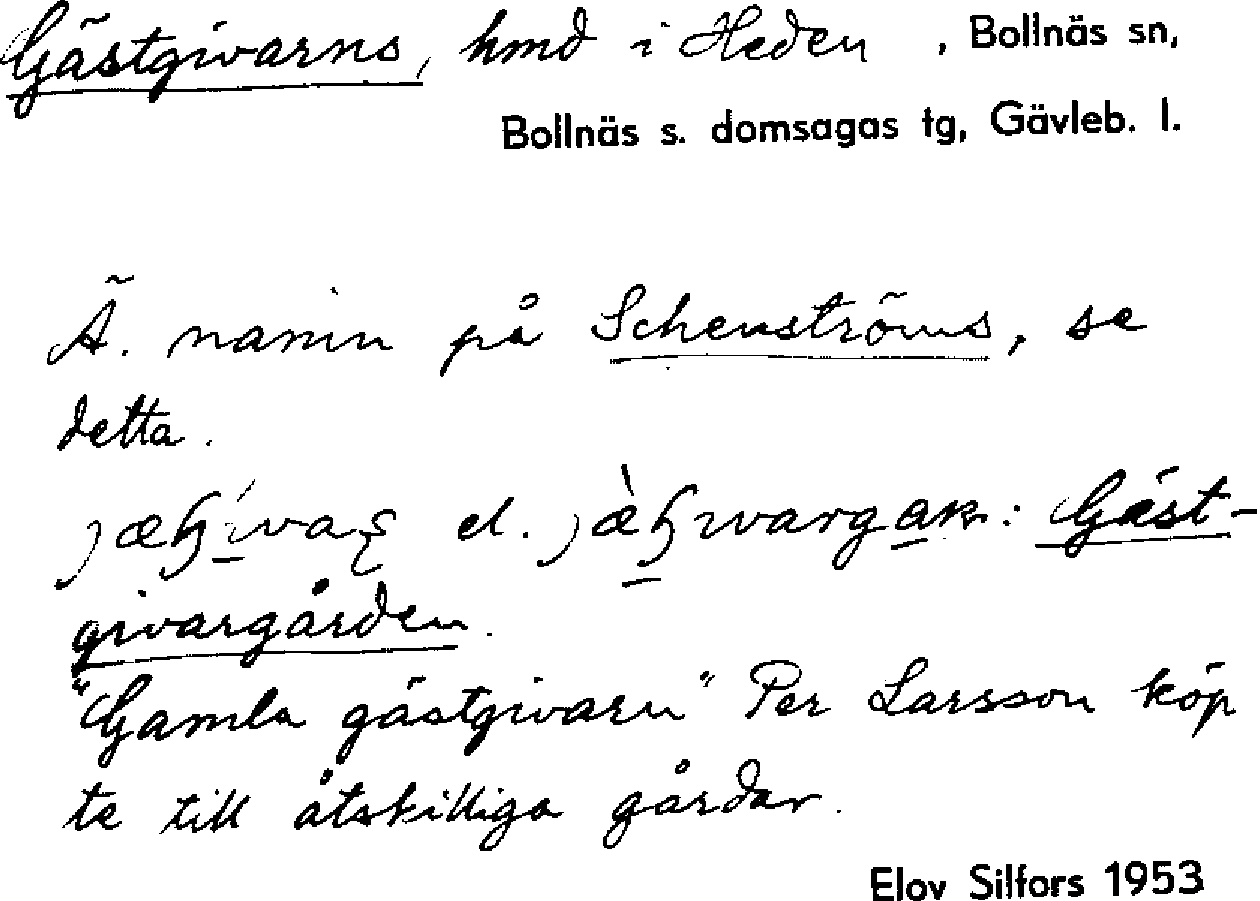 Gästgivarns, hmd i Heden , Bollnäs sn,
Bollnäs s. domsagas tg, Gävleb. l.
Ä. namn på Schenströms, se
detta.
el. : Gäst-
givargården.
"Gamla gästgivarn" Per Larsson köp
te till åtskilliga gårdar.
Elov Silfors 1953